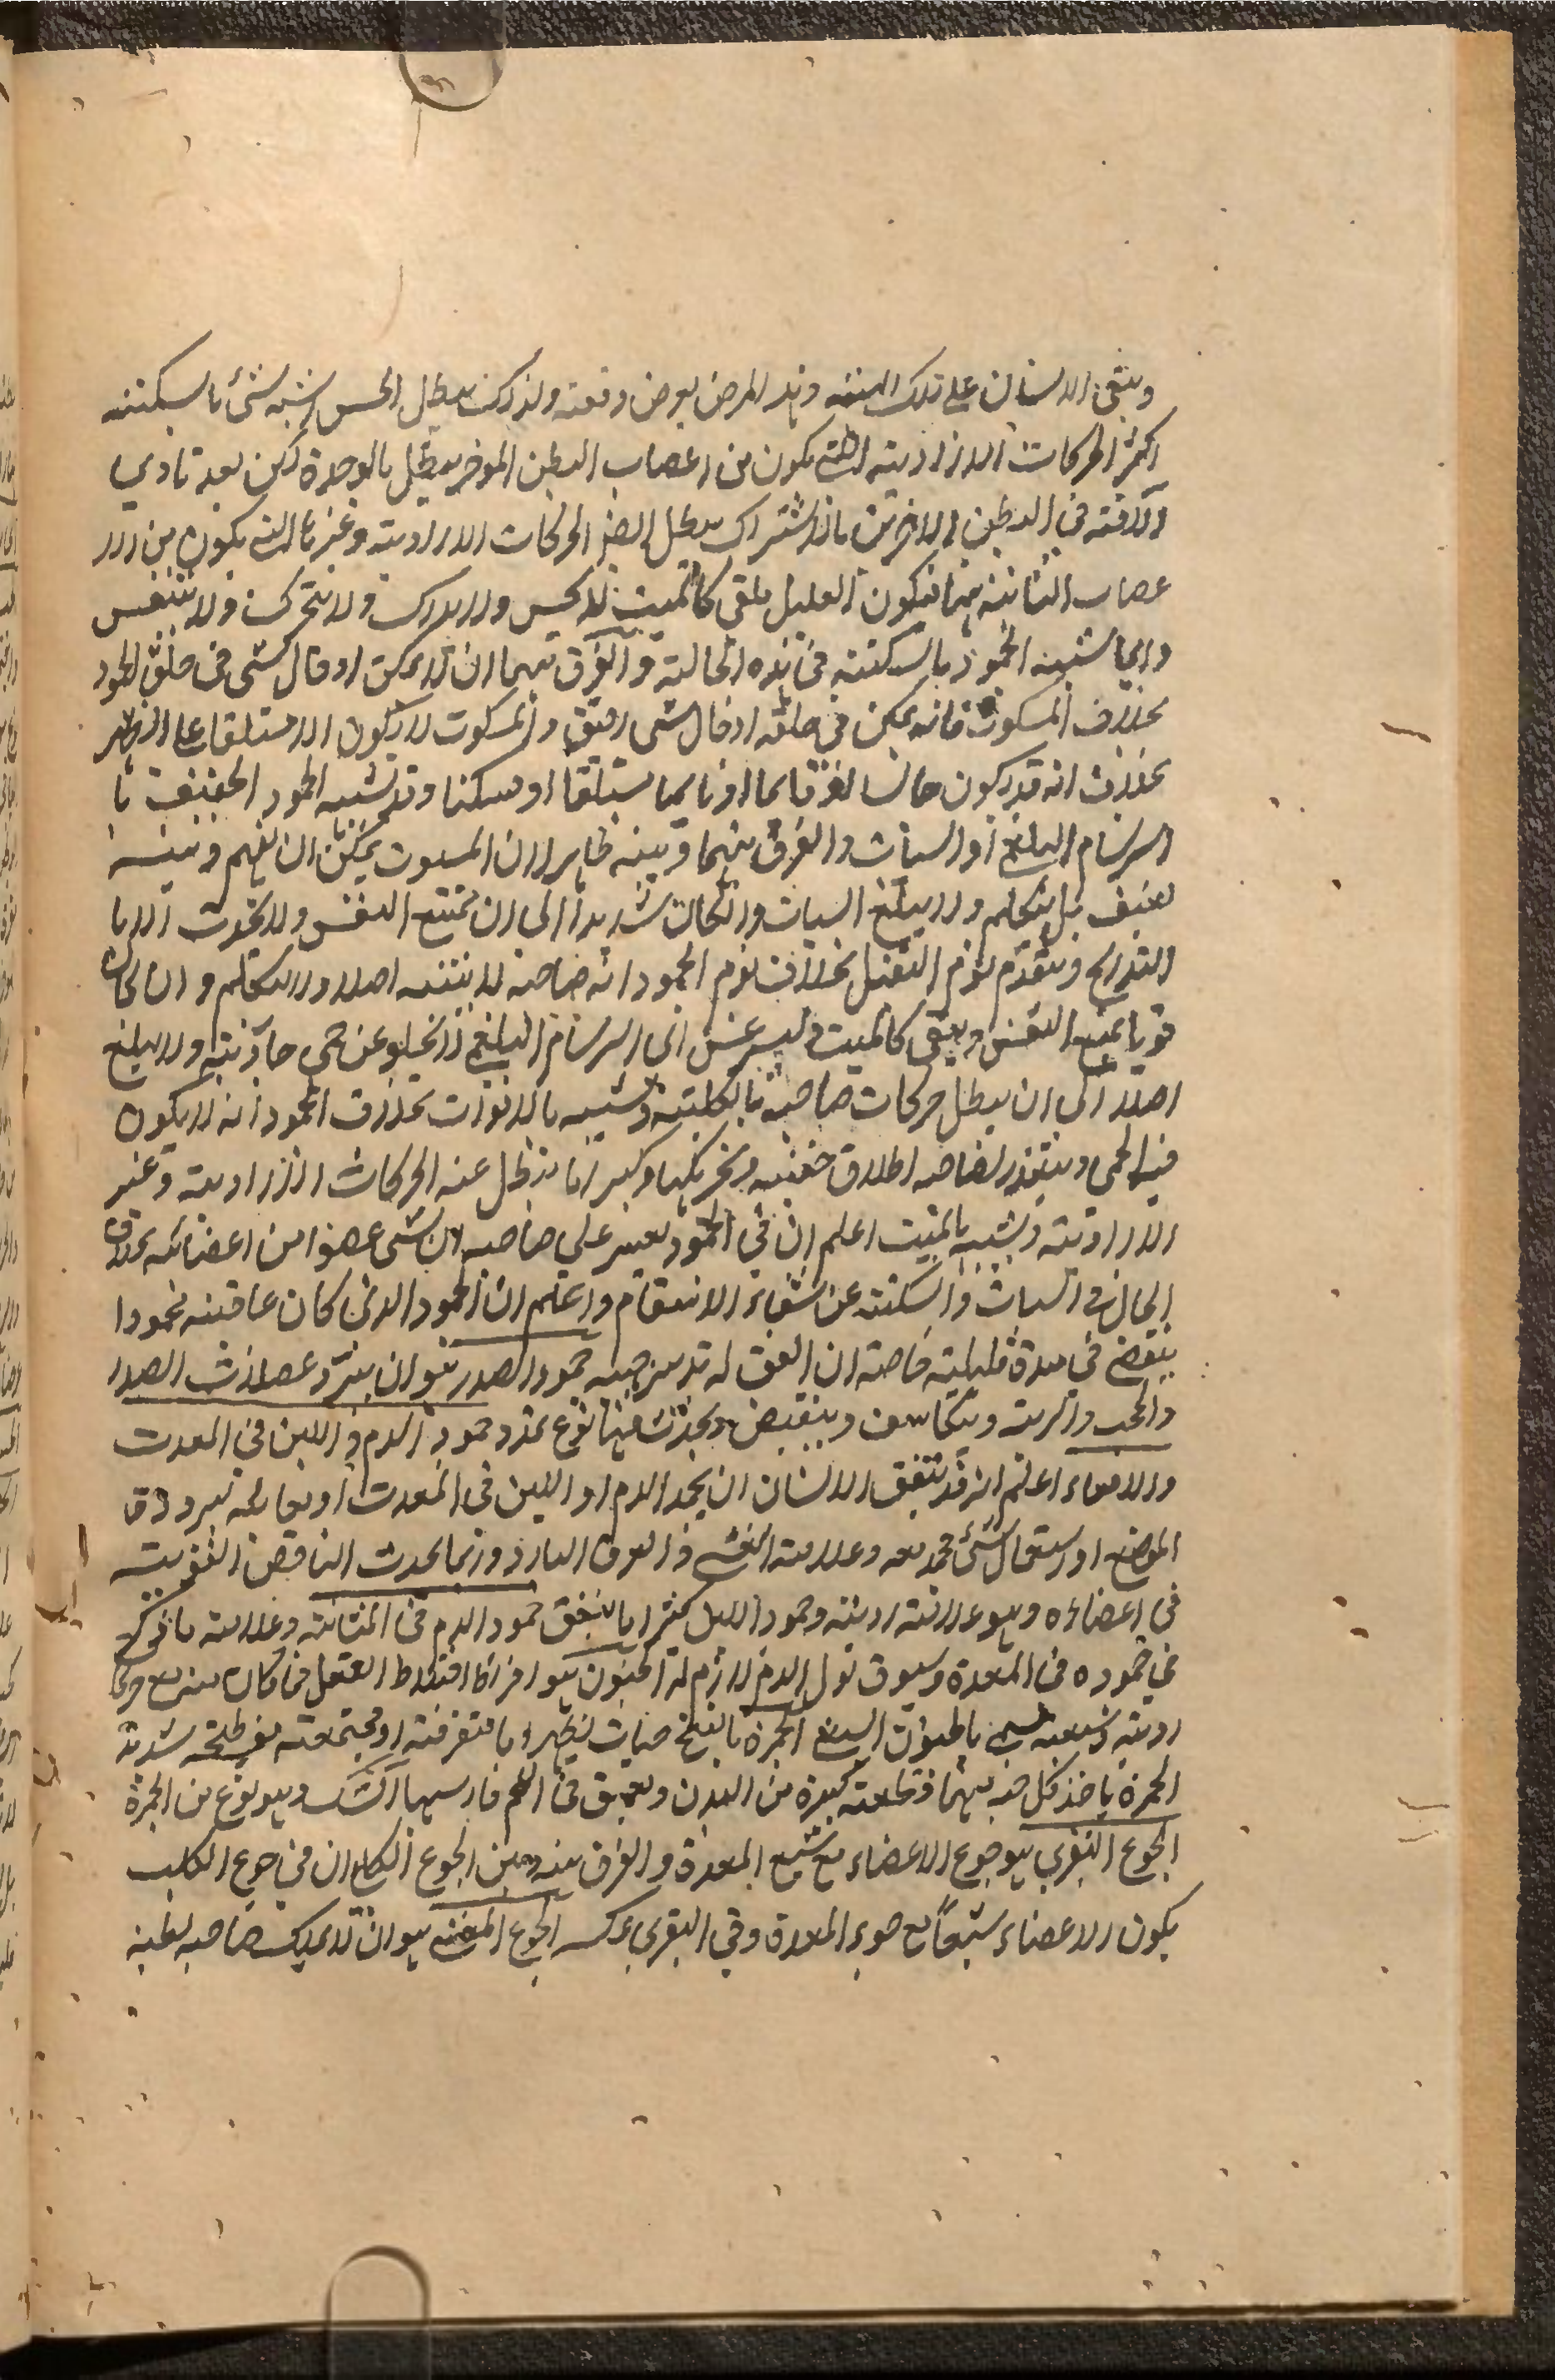 ويبقى الانسان على تلك الهيئة وهذا المرض يعرض دفعة ولذلك يبطل الحس اشبه شئ بالسكتة
اكثر الحركات الارادية التي يكون من اعصاب البطن الموخر يبطل بالوحدة لكن بعد تادي
الآفة في البطن الاخرين بالاشتراك يبطل ايضا الحركات الارادية وغيرها التي يكون من الا
عصاب الثابتة منها فيكون العليل ملقى كالميت لا يحس ولا يدرك ولا يتحرك ولا يتنفس
وانما شبيه الجمود بالسكتة في هذه الحالة والفرق بينهما ان لا يمكن ادخال شئ في حلق الجمود
بخلاف المسكوت فانه يمكن في حلقه ادخال شئ رقيق والمسكوت لا يكون الا مستلقا على الظهر
بخلاف انه قد يكون جالسا او قائما او نايما مستلقا او ساكنا وقد يشبه الجمود الخفيف با
السرسام البلغمي او السبات والفرق بينهما وبينه ظاهر لان المسبوت يمكن ان يفهم وينبه
بعنف بل يتكلم ولا يبلغ السبات وان كان شديدا الى ان يمتنع النفس ولا يموت الا با
التدريج ويتقدم نوم الثقيل بخلاف نوم الجمود انه صاحبه لا ينتبه اصلا ولا يتكلم وان كان
قويا يمنع النفس ويبقى كالميت وليسرغس اى السرسام البلغمي لا يخلو عن حمى حادثة ولا يبلغ
اصلا الى ان يبطل حركات صاحبه بالكلية ويشبه بالاموات بخلاف الجمود انه لا يكون
فيه الحمى ويتعذر لصاحبه اطلاق جفنيه وتحريكها وكثيرا ما يبطل عنه الحركات الارادية وغير
الارادية ويشبه بالميت اعلم ان في الجمود يعسر على صاحبه ان يثنى عضوا من اعضائه بخلاف
الحال في السبات والسكتة عن شفاء الاسقام واعلم ان الجمود الذي كان عاقبته محمودا
ينقضي في مدة قليلة خاصة ان اتفق له تدبير جيد جمود الصدر هو ان يبرد عضلات الصدر
والحجب والرية ويتكاثف وينقبض ويحدث فيها نوع تمدد جمود الدم واللبن في المعدة
والامعاء اعلم انه قد يتفق للانسان ان يجمد الدم او اللبن في المعدة او معائه لبرودة
الموضع او استعمال شئ مجمد معه وعلامته الغشي والعرق البارد وربما يحدث النافض القوية
في اعضاءه وهو علامة ردية وجمود اللبن كثيرا ما يخنق جمود الدم في المثانة وعلامته ما ذكر
في جموده في المعدة وسبوق بول الدم لازم له الجنون هو افراط اختلاط العقل فان كان مع حركات
ردية وسبعية يسمى مانيا الجمرة بالفتح حبات يظهر اما متفرقة او مجتمعة مفرطحة شديدة
الحمرة ياخذ كل حبة منها قطعة كبيرة من البدن ويعمق في اللحم فارسيها آتشك وهو نوع من الجمرة
الجوع البقري هو جوع الاعضاء مع شبع المعدة والفرق بينه وبين الجوع الكلبي ان في جوع الكلب
يكون الاعضاء شبعا مع جوع المعدة وفي البقري عكسه الجوع المغشي هو ان لا يملك صاحبه بطنه